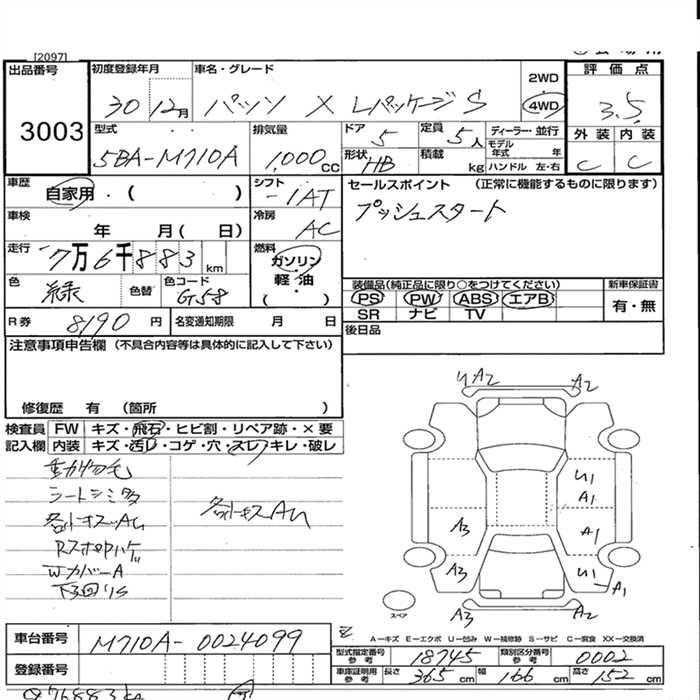 [2097]
出品番号
3003
初度登録年月
30 12月
車名・グレード
パッソ X Lパッケージ S
2WD
4WD
評価点
3.5
外装 内装
C C
型式
5BA-M710A
排気量
1,000 CC
ドア
5
定員
5人
形状
HB
積載
kg
ディーラー・並行
モデル年式 年
ハンドル 左・右
車歴
自家用・( )
シフト
-1AT
セールスポイント (正常に機能するものに限ります)
プッシュスタート
車検
年 月( 日)
冷房
AC
走行
7万6千883 km
燃料
ガソリン
軽・油
( ・ )
色
緑
色替
色コード
G58
装備品(純正品に限り○をつけてください)
PS PW ABS エアB
SR ナビ TV
新車保証書
有・無
R券
8,190 円
名変通知期限 月 日
後日品
注意事項申告欄 (不具合内容等は具体的に記入して下さい)
修復歴 有 (箇所 )
検査員記入欄
FW キズ・飛石・ヒビ割・リペア跡・×要
内装 キズ・汚レ・コゲ・穴・スレ・キレ・破レ
動物毛
シートシミ多
各外キズAU
各外キズAU
WカバーA
A2
A2
U1
A1
A3
A1
A3
U1
A1
A3
A2
スペア
A-キズ E-エクボ U-凹み W-補修跡 S-サビ C-腐食 XX-交換済
車台番号
M710A-0024099
登録番号
型式指定番号参考
18745
類別区分番号参考
0002
車庫証明用参考
長さ 365 cm 幅 166 cm 高さ 152 cm